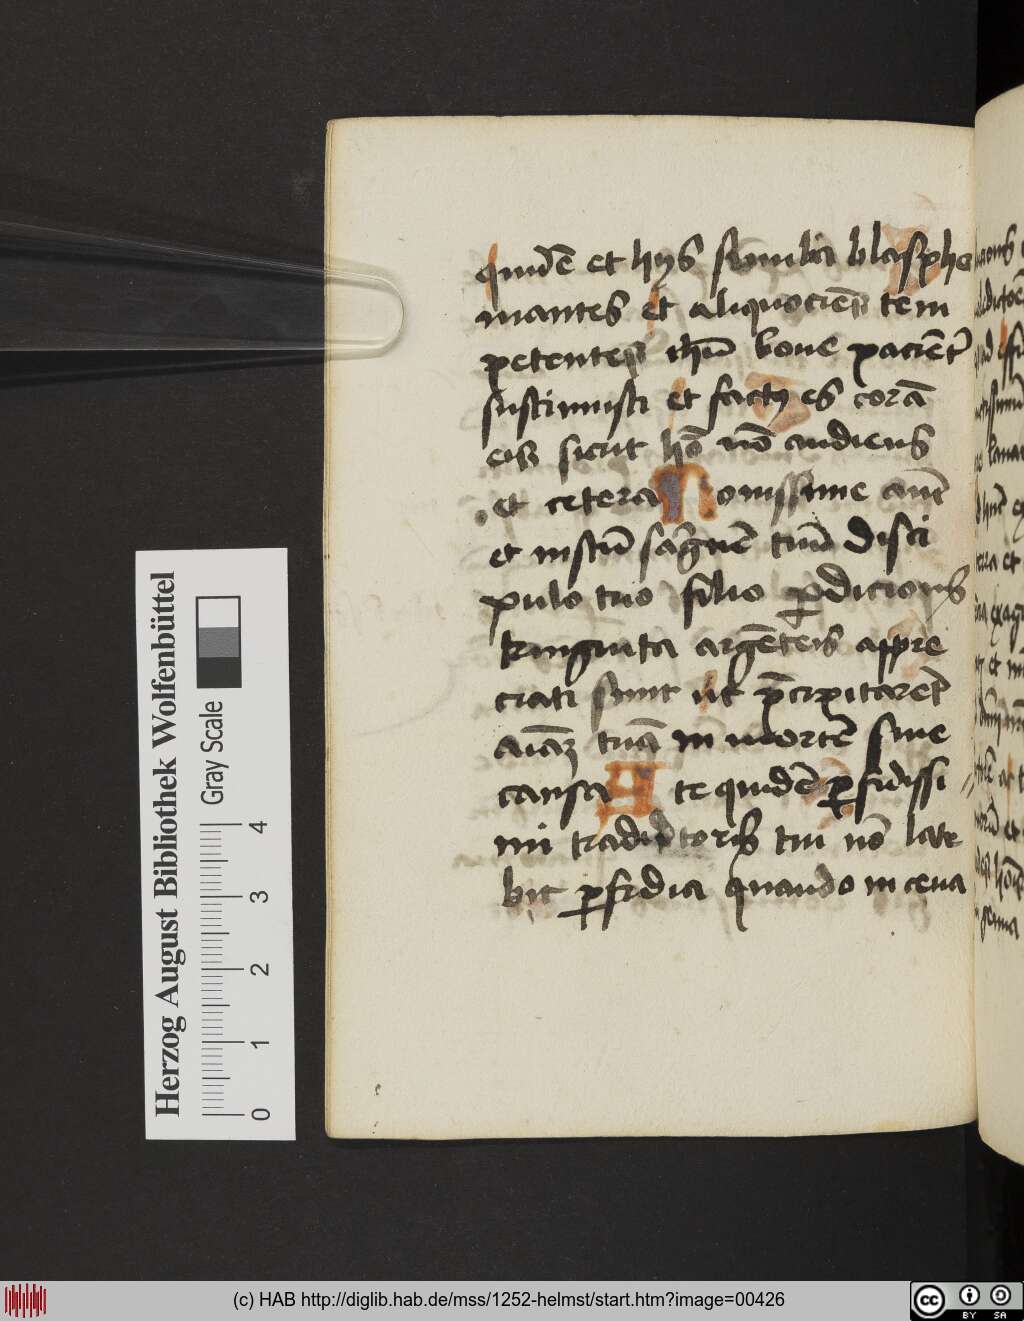 quidē et hijs similia blasphe
mantes et aliquociens tem
petentes ihū bone pacient
sustinuisti et factꝰ es corā
eis sicut hō nō audiens
et cetera Nouissime aut
et iustū sāguinē tuū disci
pulo tuo filio ꝑdicionis
tringinta argēteis appre
ciati sunt ut p̄cipitarēt
aīaꝫ tuā in mortē sine
causa A te quidē ꝑfidissi
mi traditoris tui nō late
bit ꝑfidia quando in cena
Herzog August Bibliothek Wolfenbüttel
Gray Scale
0 1 2 3 4
(c) HAB http://diglib.hab.de/mss/1252-helmst/start.htm?image=00426
cc BY SA